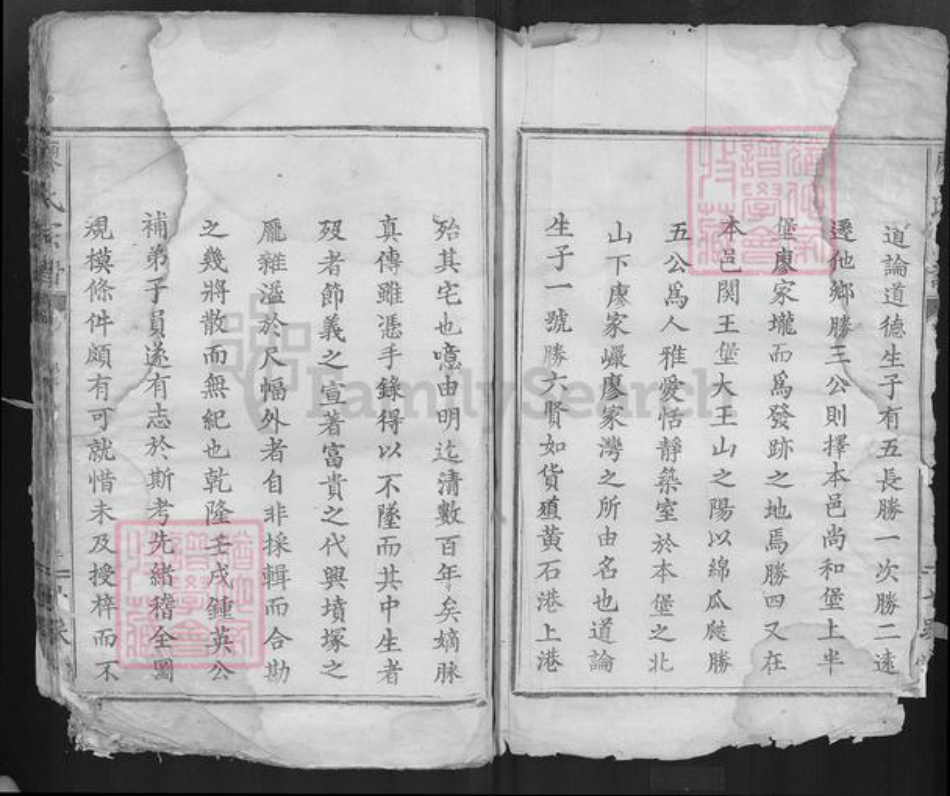 道論道德生子有五長勝一次勝二遠
遷他鄉勝三公則擇本邑尚和堡上半
堡廖家壠而為發跡之地焉勝四又在
本邑関王堡大王山之陽以綿瓜瓞勝
五公爲人雅愛恬靜築室於本堡之北
山下廖家巗廖家灣之所由名也道論
生子一號勝六賢如貨殖黃石港上港
殆其宅也噫由明迄清數百年矣嫡脉
真傳雖憑手錄得以不墜而其中生者
歿者節義之宣著富貴之代興墳塚之
厖雜溢於尺幅外者自非採輯而合勘
之幾將散而無紀也乾隆壬戌鍾英公
補弟子員遂有志於斯考先緒稽全圖
規模條件頗有可就惜未及授梓而不
FamilySearch